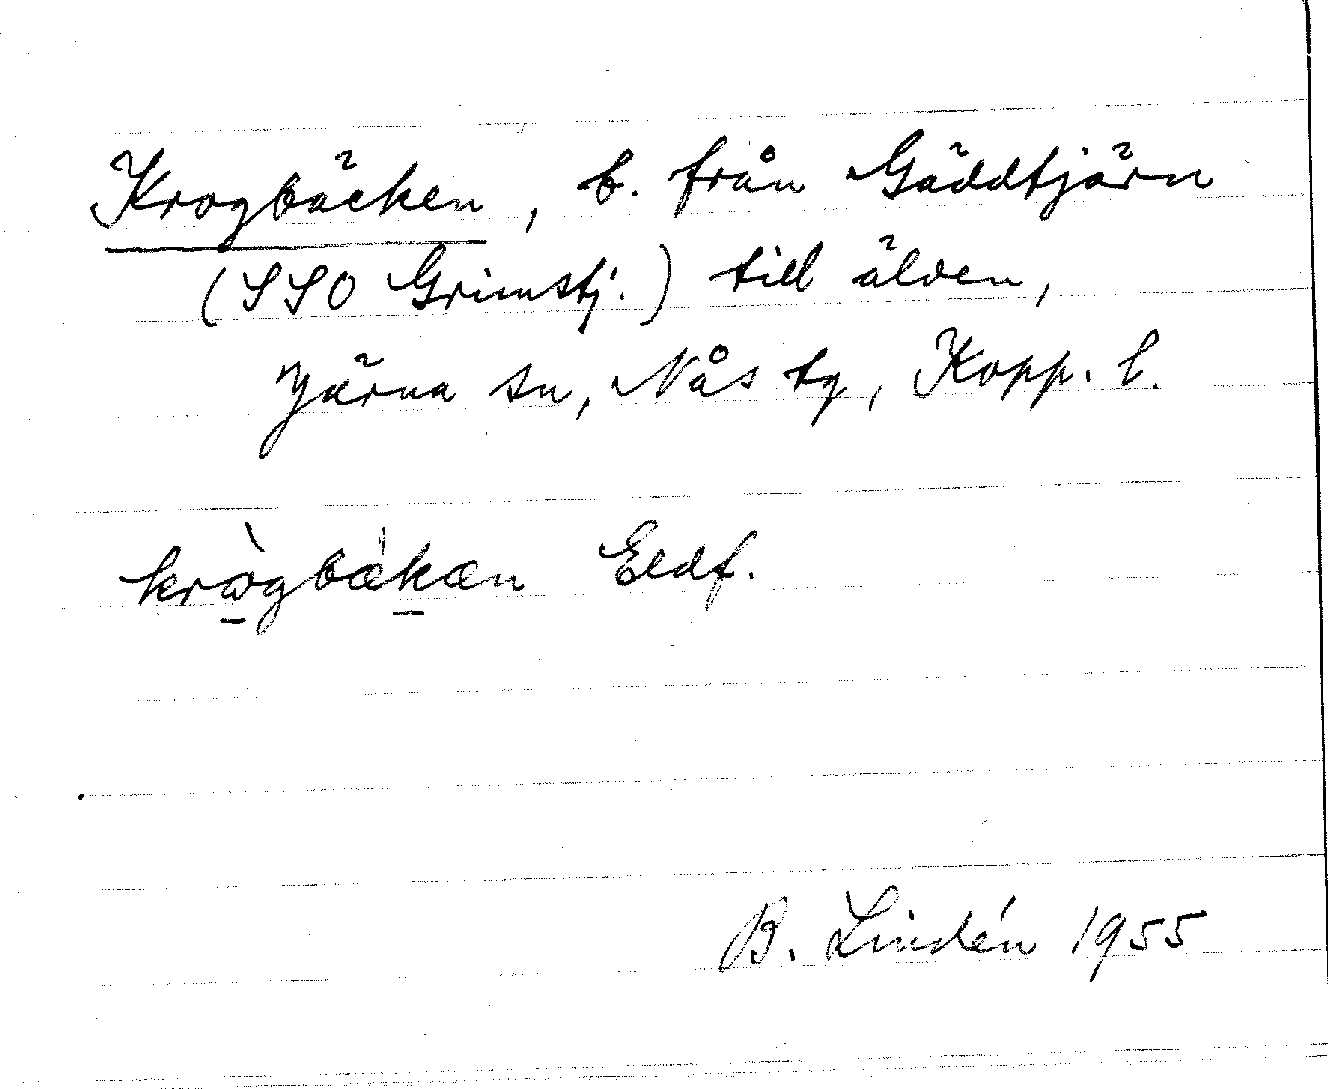 Krogbäcken, b. från Gäddtjärn
(SSO Grimstj.) till älven,
Järna sn, Nås tg, Kopp. l.
krògbækæn Eldf.
B. Lindén 1955